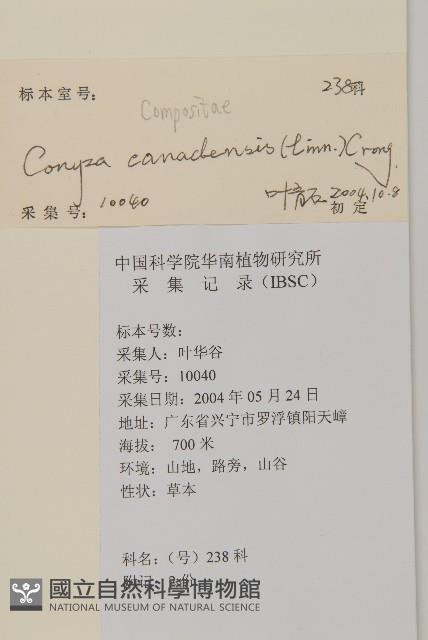 标本室号: 238科
Compositae
Conyza canadensis (Linn.) Cronq.
采集号: 10040 2004.10.8
初定
中国科学院华南植物研究所
采 集 记 录（IBSC）
标本号数：
采集人：叶华谷
采集号：10040
采集日期：2004 年 05 月 24 日
地址：广东省兴宁市罗浮镇阳天嶂
海拔： 700 米
环境：山地，路旁，山谷
性状：草本
科名：（号）238 科
附记：2 份
國立自然科學博物館
NATIONAL MUSEUM OF NATURAL SCIENCE